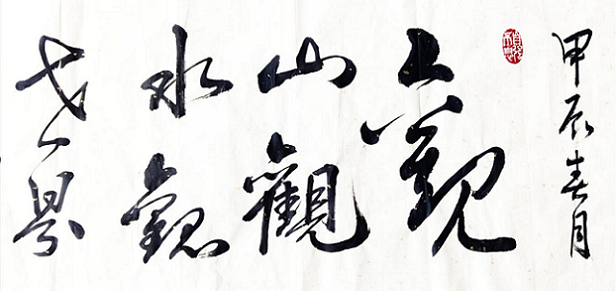 甲辰春月
觀
山觀
水觀
景